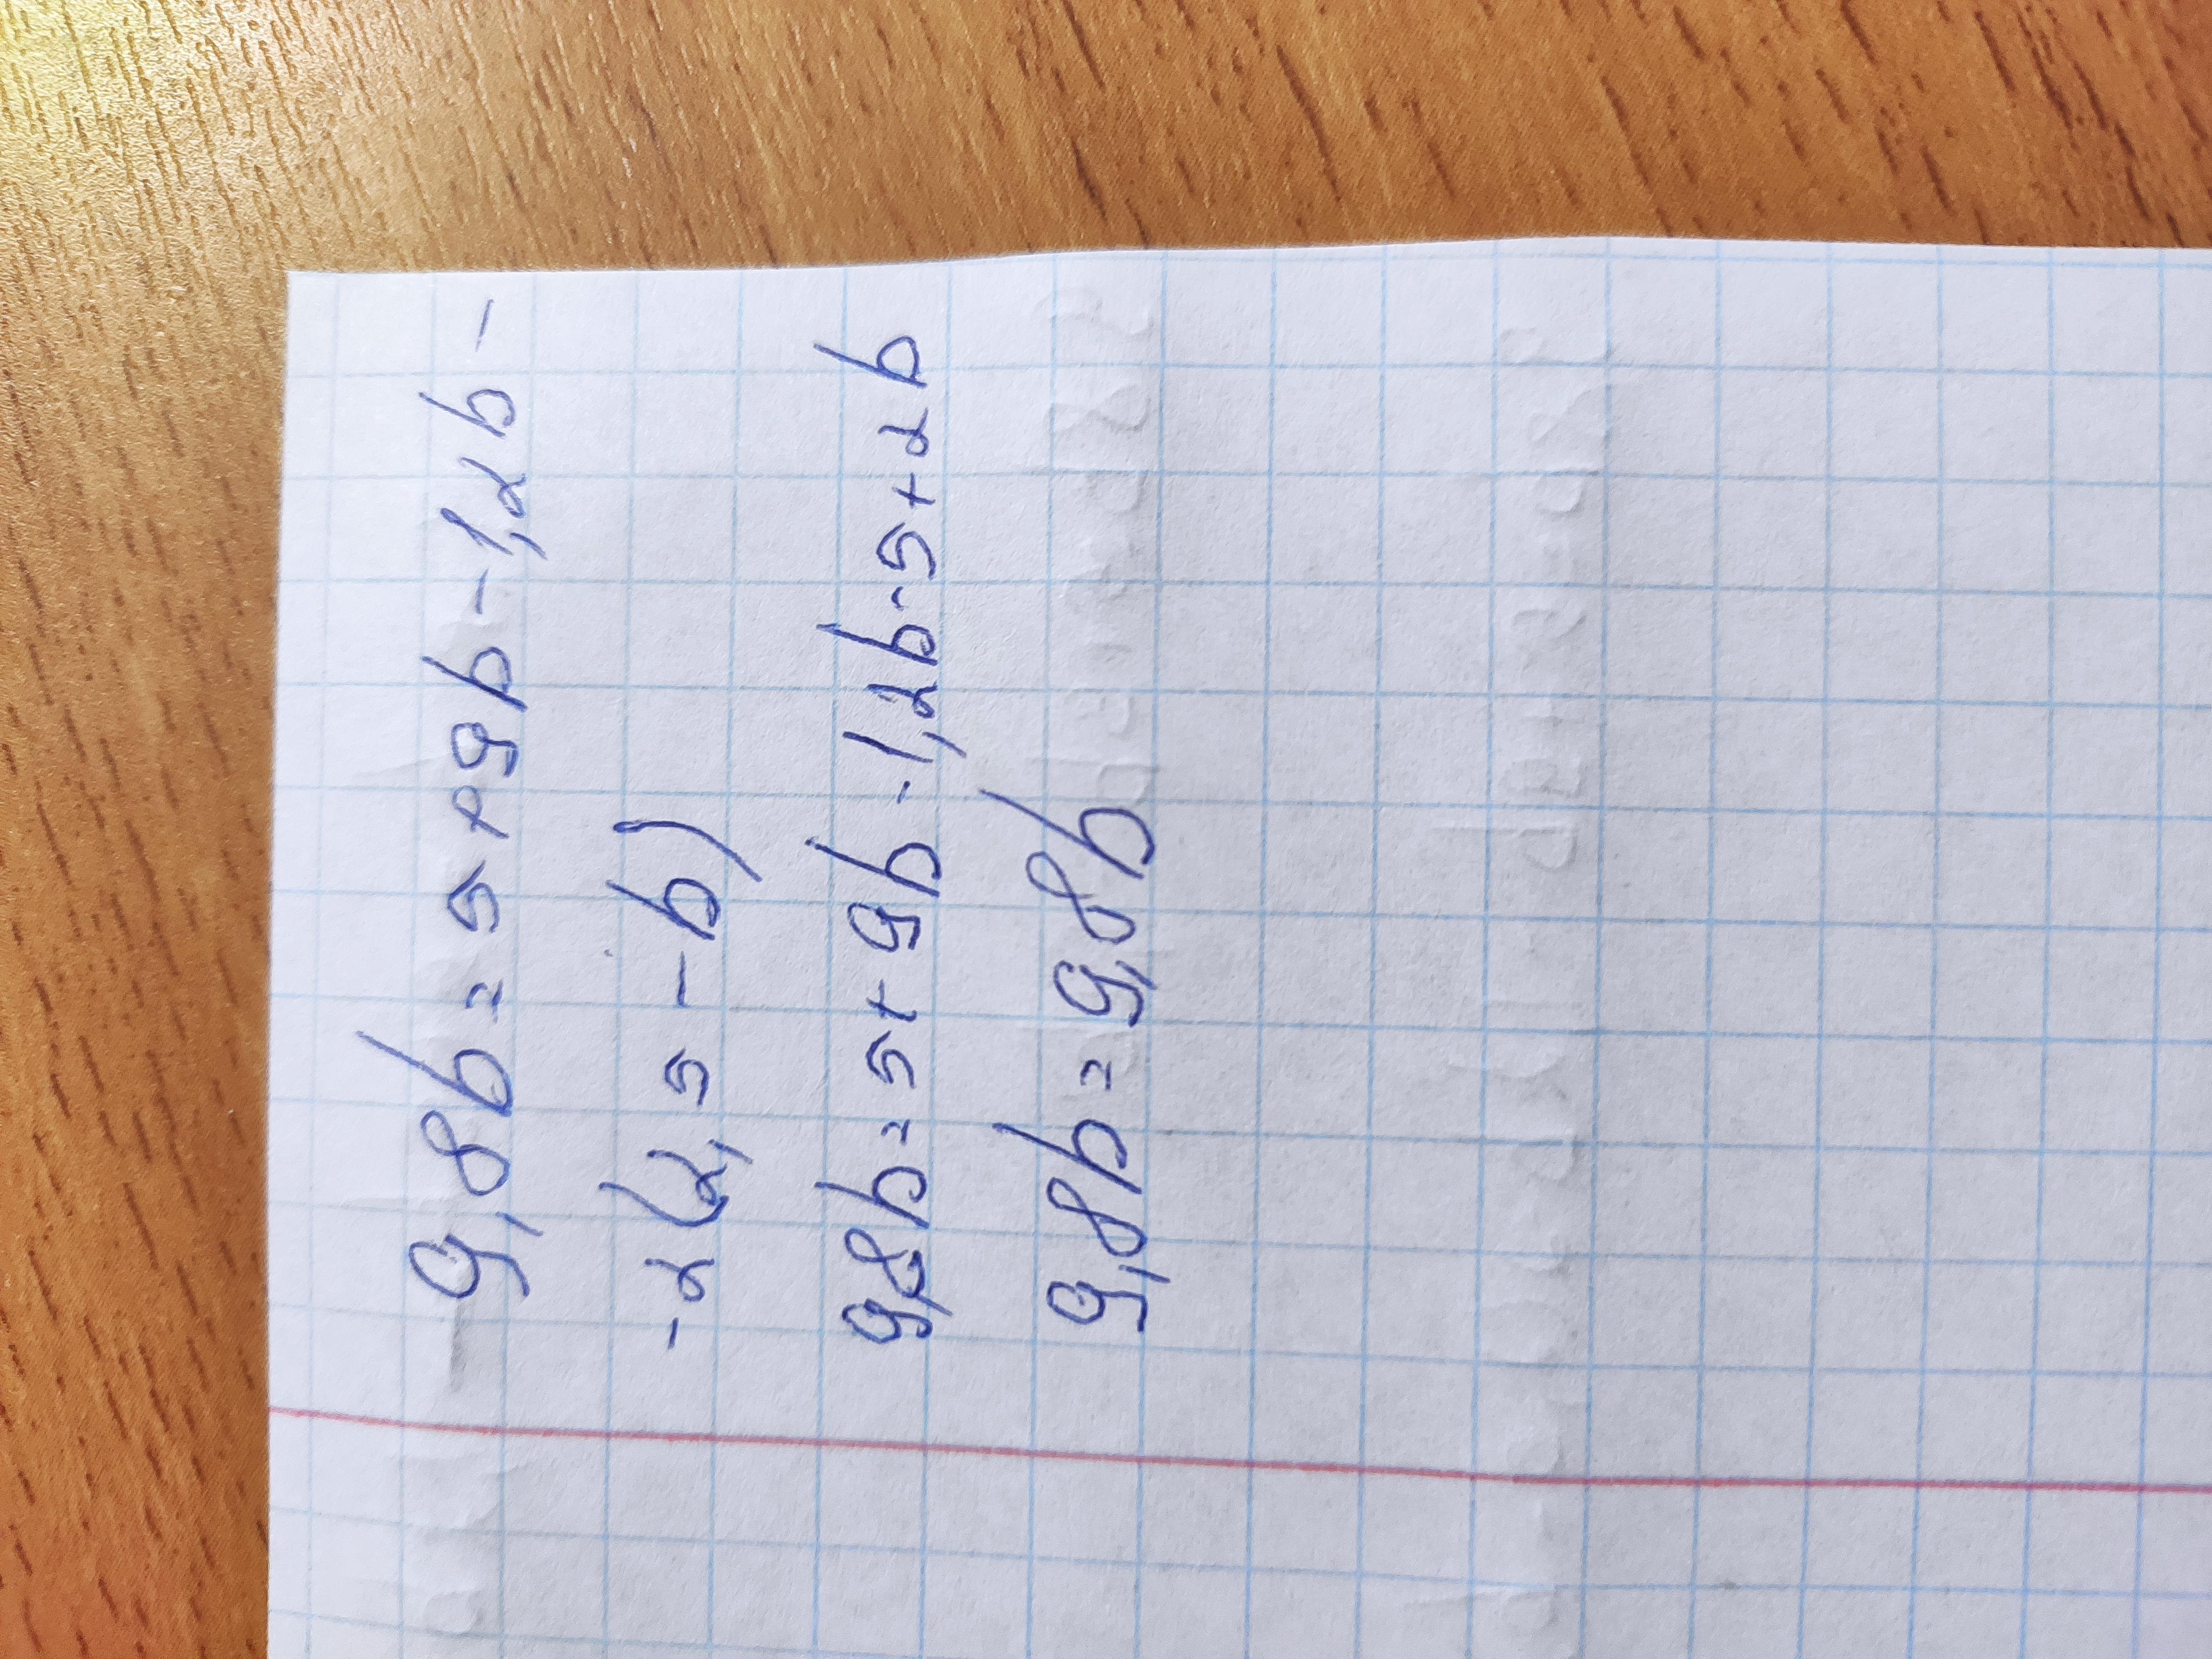 9,8b = 5 + 9b - 1,2b -
- 2(2,5 - b)
9,8b = 5 + 9b - 1,2b - 5 + 2b
9,8b = 9,8b